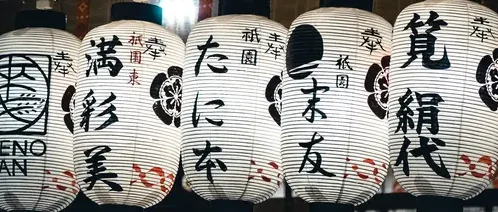 ENO
AN
奉
満彩美
祇園東
奉
たに本
祇園
奉
末友
祇園
奉
筧絹代
奉